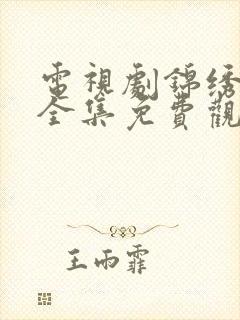 電視劇錦绣
全集免費觀
王雨霏